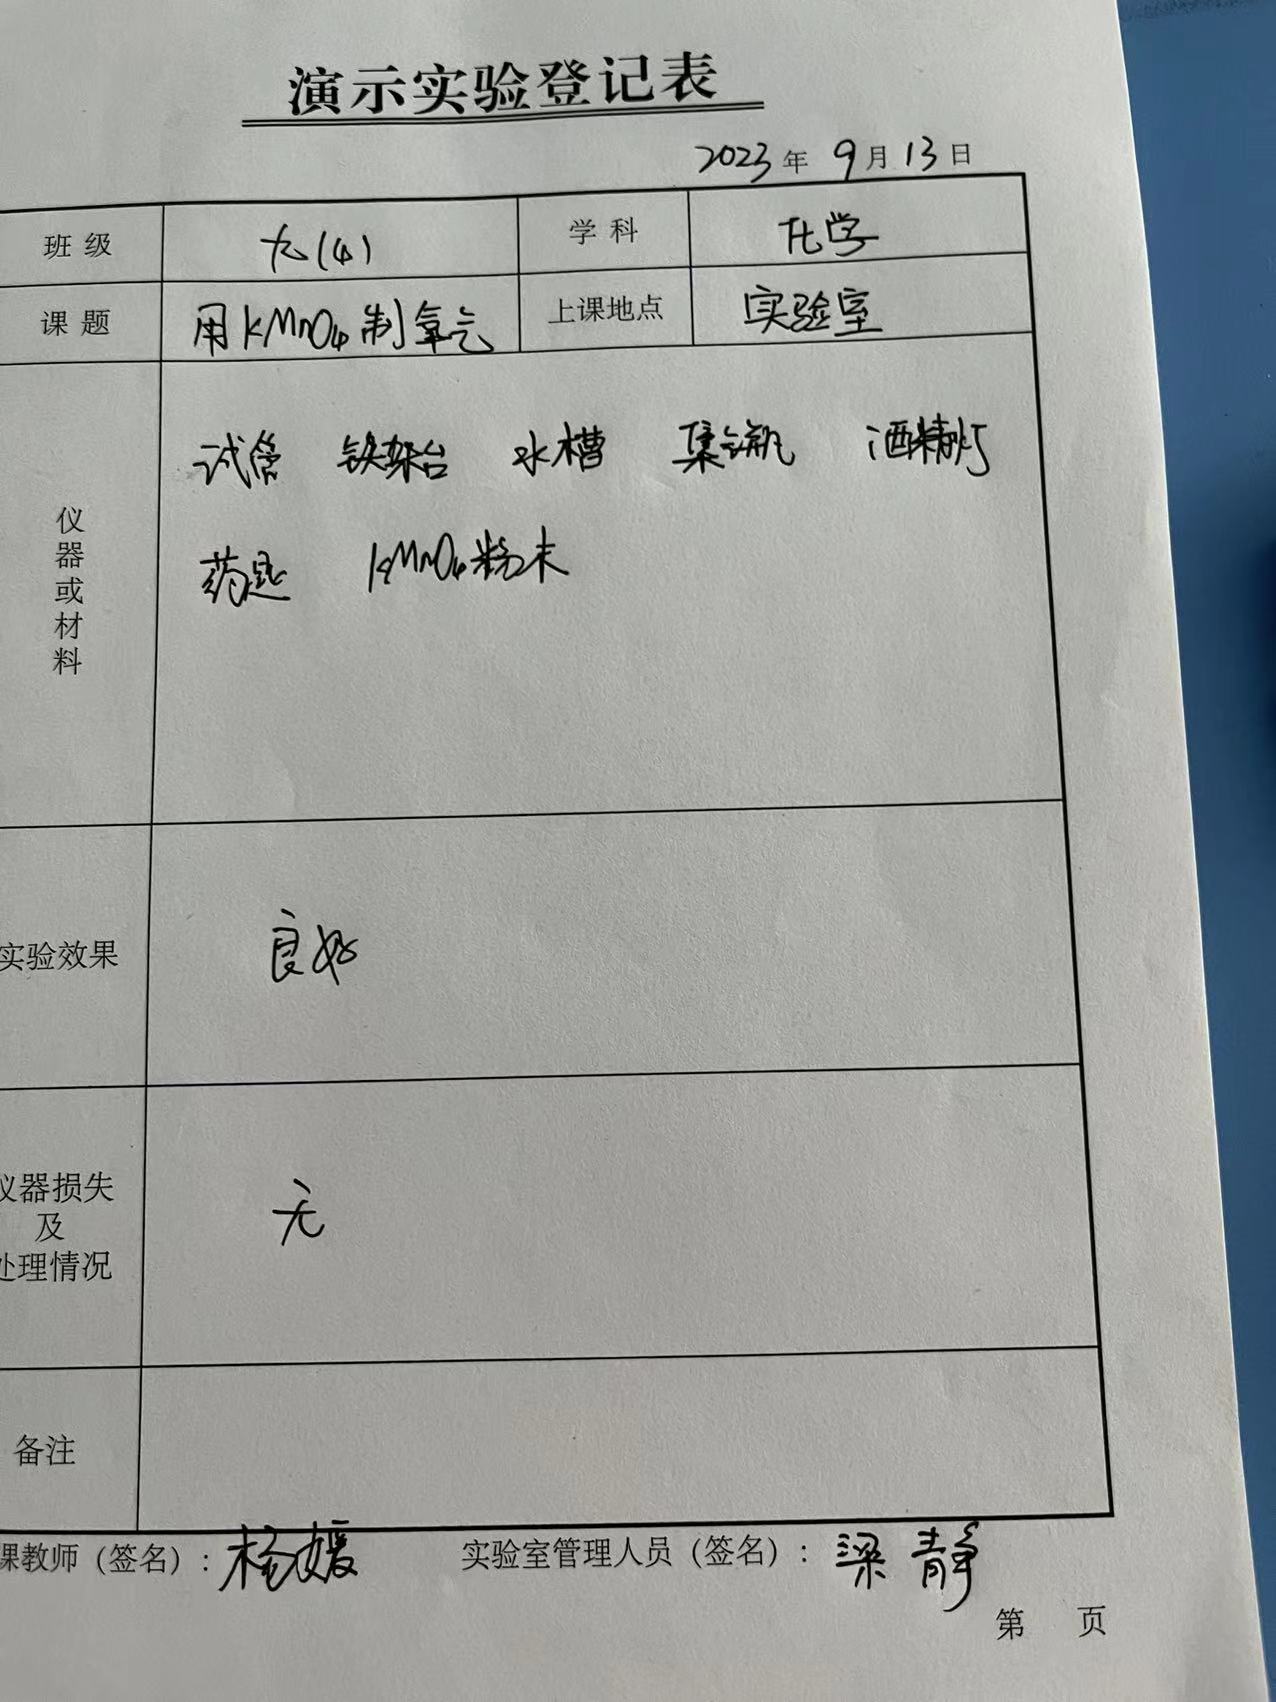 演示实验登记表
2023年 9月13日
班级 九(4) 学科 化学
课题 用KMnO4制氧气 上课地点 实验室
仪器或材料
试管 铁架台 水槽 集气瓶 酒精灯
药匙 KMnO4粉末
实验效果 良好
仪器损失
及
处理情况
无
备注
课教师（签名）：杨媛 实验室管理人员（签名）：梁静
第 页